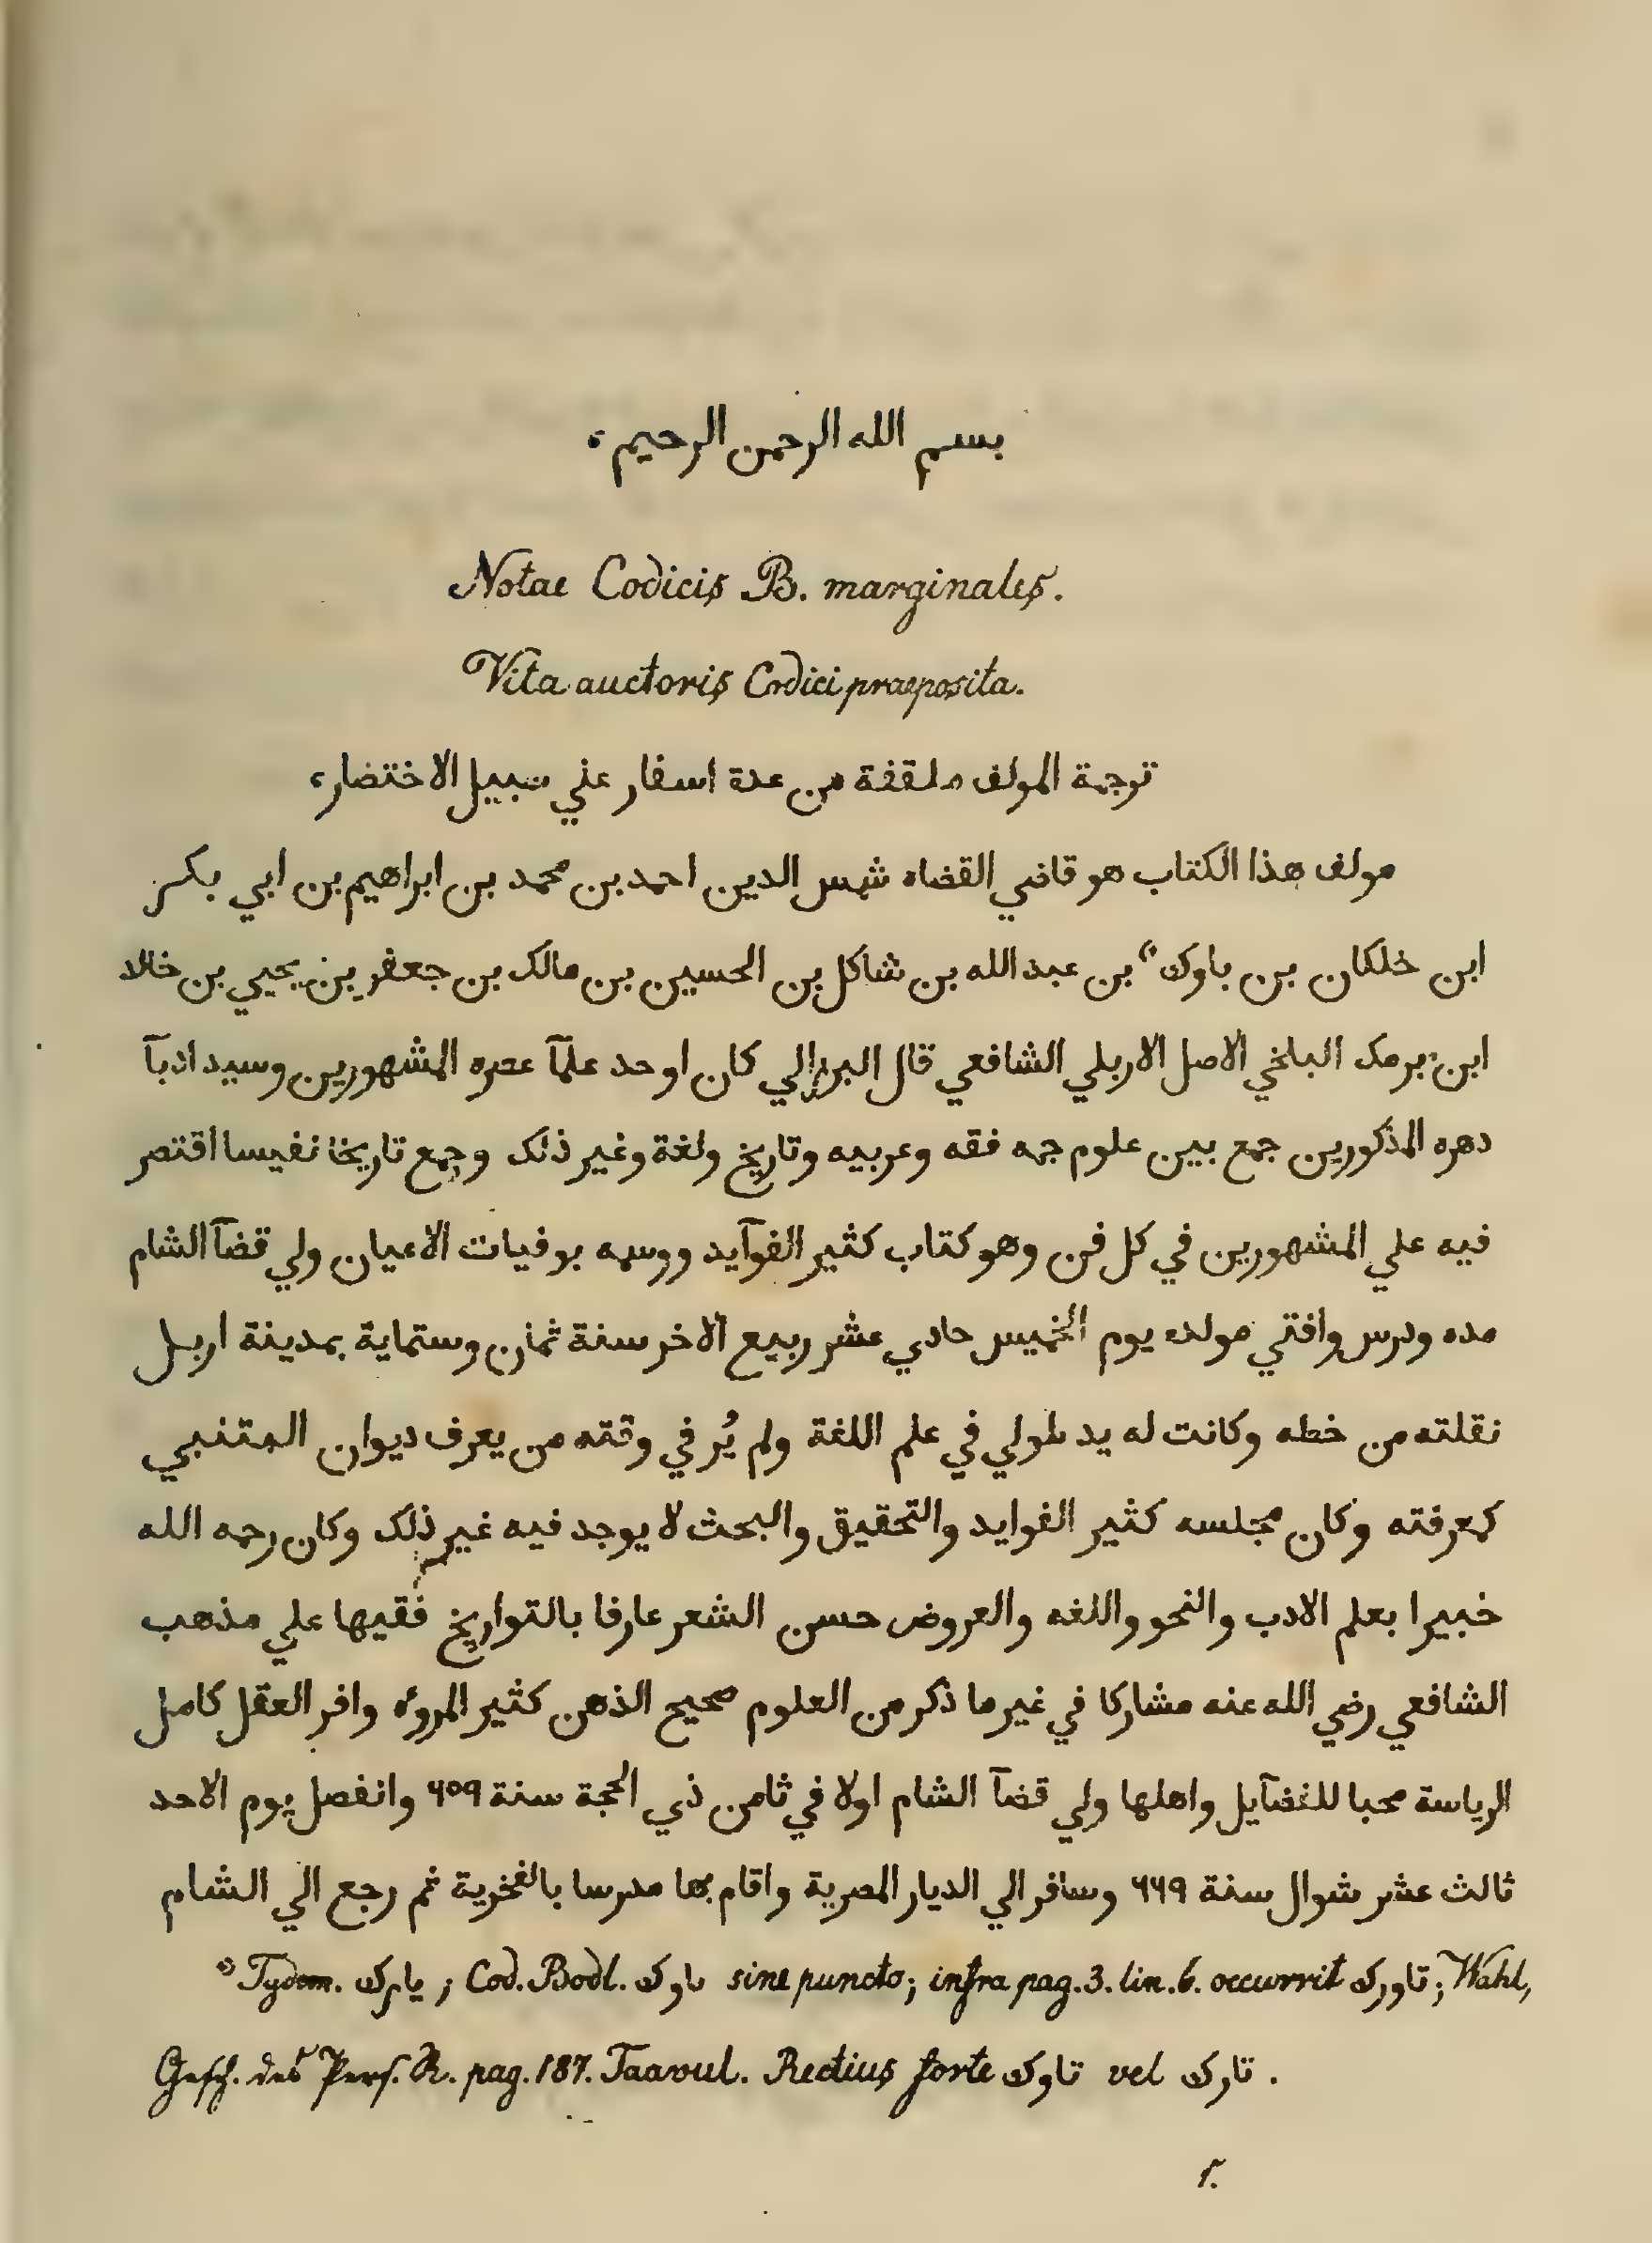 بسم الله الرحمن الرحيم،
Notae Codicis B. marginales.
Vita auctoris Codici praeposita.
ترجمة المولف ملقفة من عدة اسفار علي سبيل الاختضار،
مولف هذا الكتاب هو قاضي القضاه شمس الدين احمد بن محمد بن ابراهيم بن ابي بكر
ابن خلكان بن باوك بن عبد الله بن شاكل بن الحسين بن مالك بن جعفر بن يحيي بن خالد
ابن برمك البلخي الاصل الاربلي الشافعي قال البرزالي كان اوحد علمآ عصره المشهورين وسيد ادبآ
دهره المذكورين جمع بين علوم جمه فقه وعربيه وتاريخ ولغة وغير ذلك وجمع تاريخا نفيسا اقتصر
فيه علي المشهورين في كل فن وهو كتاب كثير الفوآيد ووسمه بوفيات الاعيان ولي قضآ الشام
مده ودرس وافتي مولده يوم الخميس حادي عشر ربيع الاخر سنة ثمان وستماية بمدينة اربل
نقلته من خطه وكانت له يد طولي في علم اللغة ولم يُر في وقته من يعرف ديوان المتنبي
كمعرفته وكان مجلسه كثير الفوايد والتحقيق والبحث لا يوجد فيه غير ذلك وكان رحمه الله
خبيرا بعلم الادب والنحو واللغه والعروض حسن الشعر عارفا بالتواريخ فقيها علي مذهب
الشافعي رضي الله عنه مشاركا في غير ما ذكر من العلوم صحيح الذهن كثير المروءه وافر العقل كامل
الرياسة محبا للفضآيل واهلها ولي قضآ الشام اولا في ثامن ذي الحجة سنة ٦٥٩ وانفصل يوم الاحد
ثالث عشر شوال سنة ٦٦٩ وسافر الي الديار المصرية واقام بها مدرسا بالفخرية ثم رجع الي الشام
Tydem. يارك ; Cod. Bodl. ٮاوك sine puncto; infra pag. 3. lin. 6. occurrit تاورك; Wahl,
Gesch. des Pers. R. pag. 187. Taavul. Rectius forte تاوك vel تارك .
1.